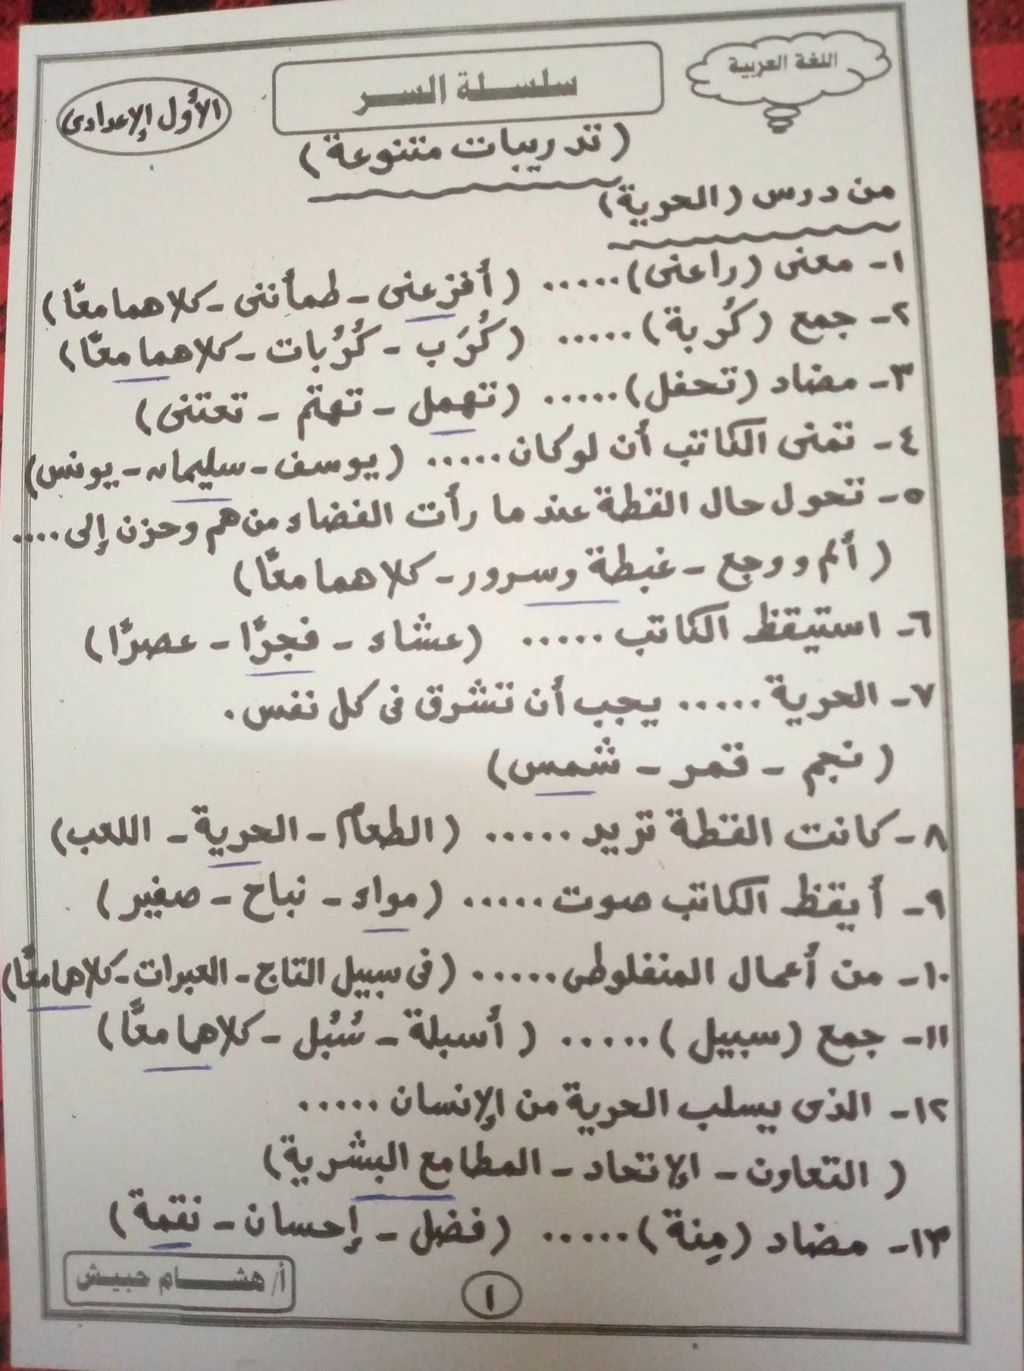 اللغة العربية
سلسلة السر
الأول الإعدادى
(تدريبات متنوعة)
من درس (الحرية)
١- معنى (راعنى)..... (أفزعنى - طمأننى - كلاهما معًا)
٢- جمع (كُربة)..... (كُرَب - كُرُبات - كلاهما معًا)
٣- مضاد (تحفل)..... (تهمل - تهتم - تعتنى)
٤- تمنى الكاتب أن لو كان..... (يوسف - سليمان - يونس)
٥- تحول حال القطة عند ما رأت الفضاء من هم وحزن إلى....
(ألم ووجع - غبطة وسرور - كلاهما معًا)
٦- استيقظ الكاتب..... (عشاء - فجرًا - عصرًا)
٧- الحرية..... يجب أن تشرق فى كل نفس.
(نجم - قمر - شمس)
٨- كانت القطة تريد..... (الطعام - الحرية - اللعب)
٩- أيقظ الكاتب صوت..... (مواء - نباح - صفير)
١٠- من أعمال المنفلوطى..... (فى سبيل التاج - العبرات - كلاهما معًا)
١١- جمع (سبيل)..... (أسبلة - سُبُل - كلاهما معًا)
١٢- الذى يسلب الحرية من الإنسان.....
(التعاون - الإتحاد - المطامع البشرية)
١٣- مضاد (مِنة)..... (فضل - إحسان - نقمة)
أ/ هشام حبيش
١